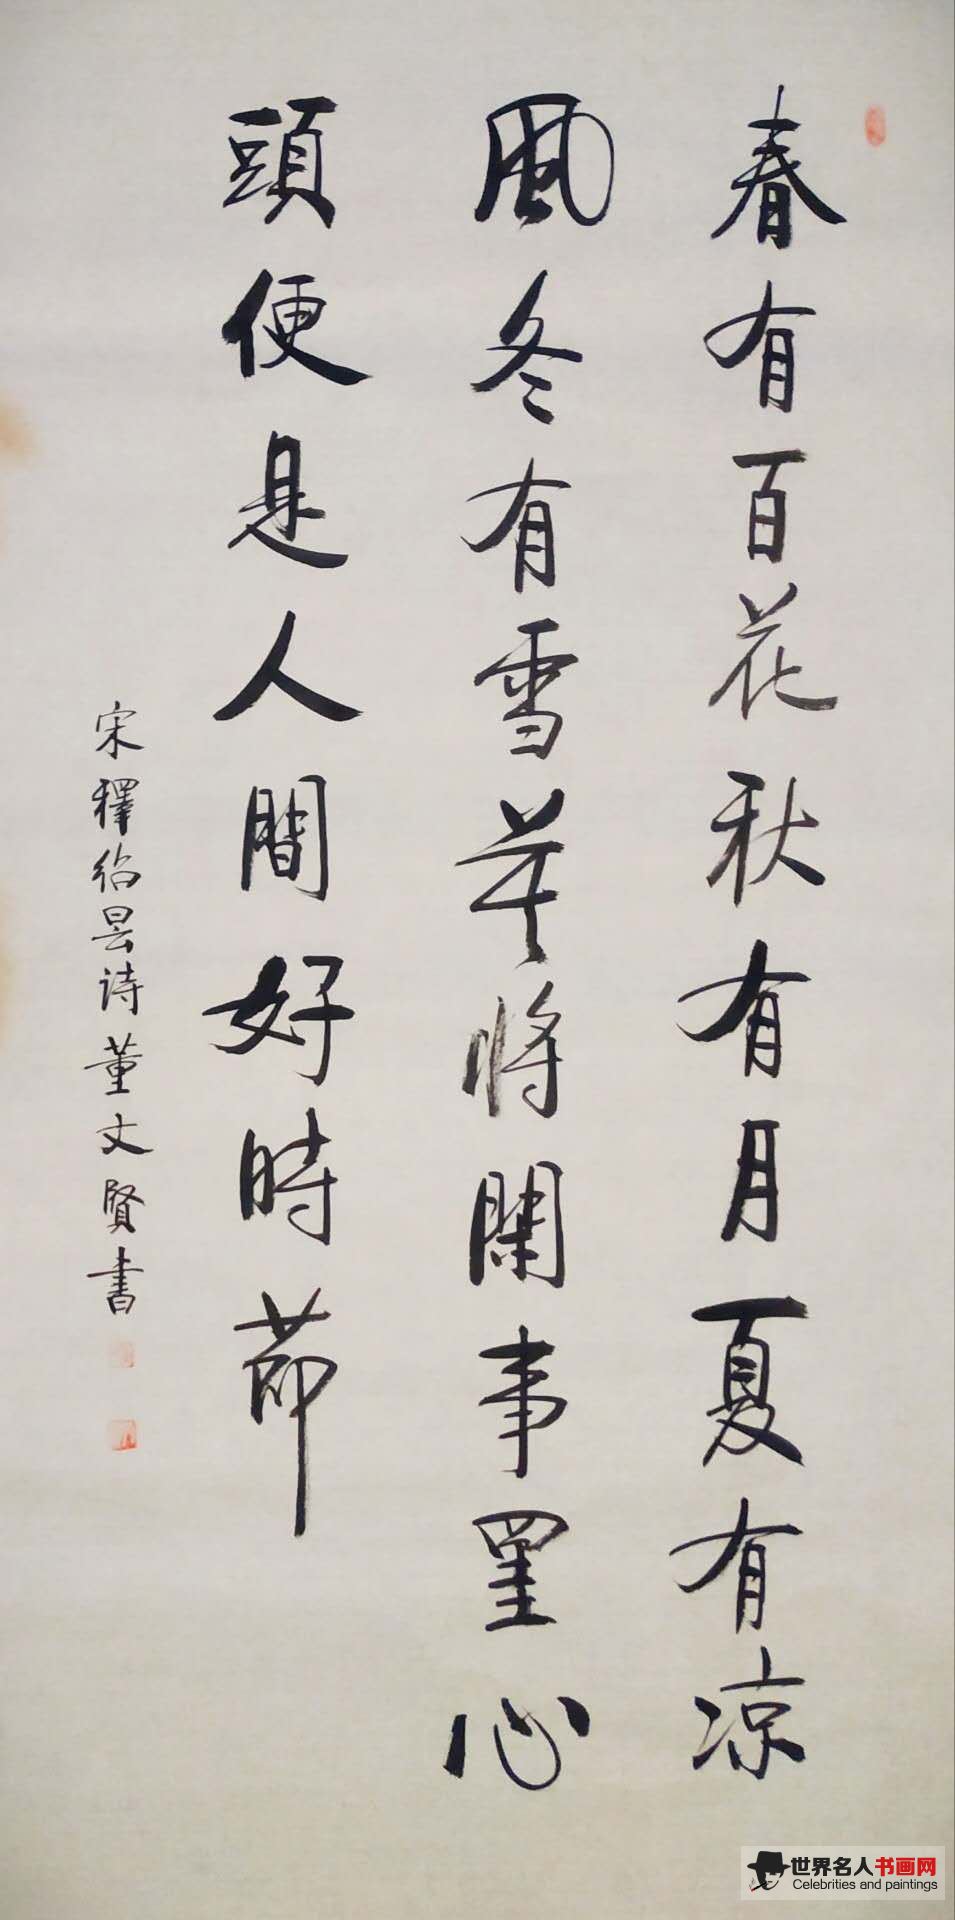 春有百花秋有月夏有凉
風冬有雪莫将閑事罣心
頭便是人間好時節
宋釋紹昙诗董文賢書
世界名人书画网
Celebrities and paintings